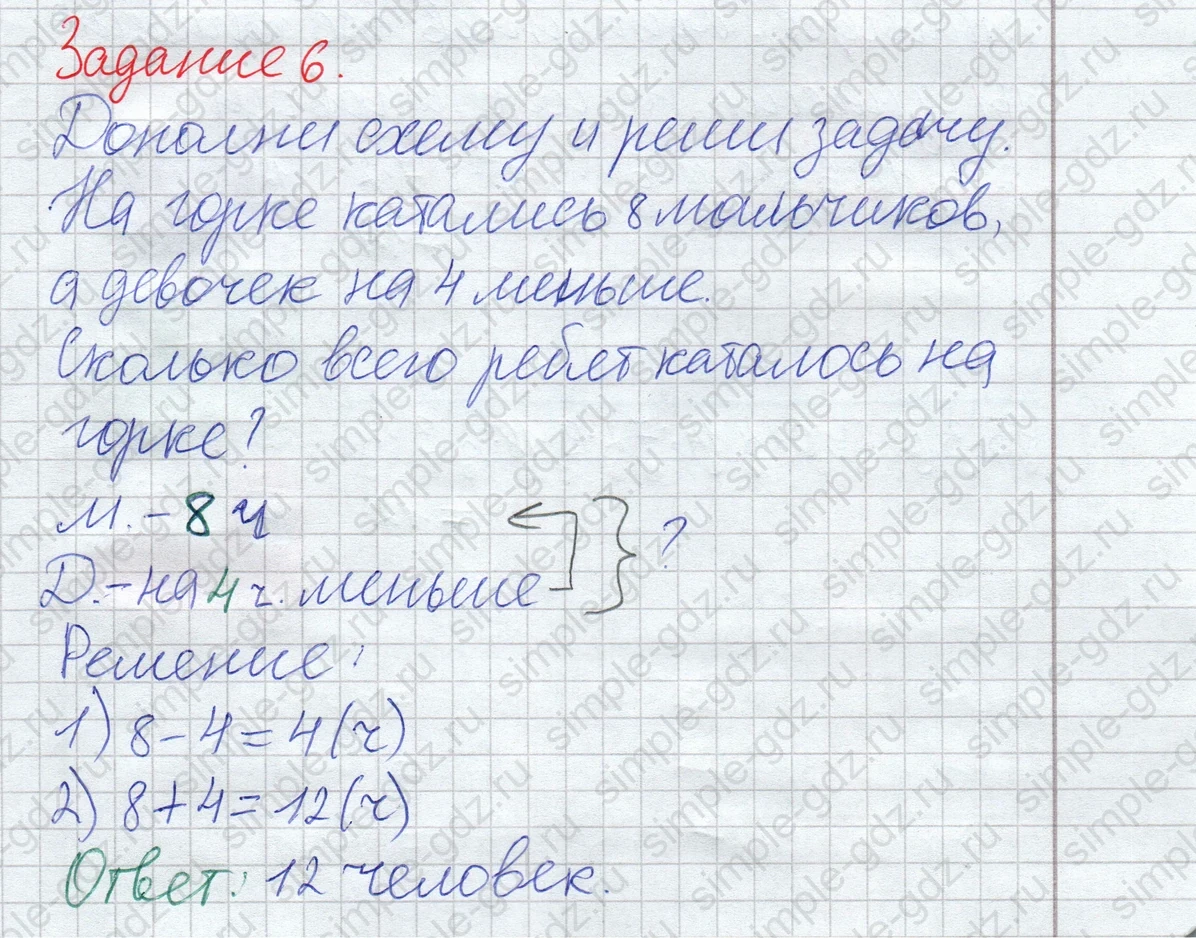 Задание 6.
Дополни схему и реши задачу.
На горке катались 8 мальчиков,
а девочек на 4 меньше.
Сколько всего ребят каталось на
горке?
М. - 8 ч
Д. - на 4 ч. меньше } ?
Решение:
1) 8 - 4 = 4 (ч)
2) 8 + 4 = 12 (ч)
Ответ: 12 человек.
simple-gdz.ru